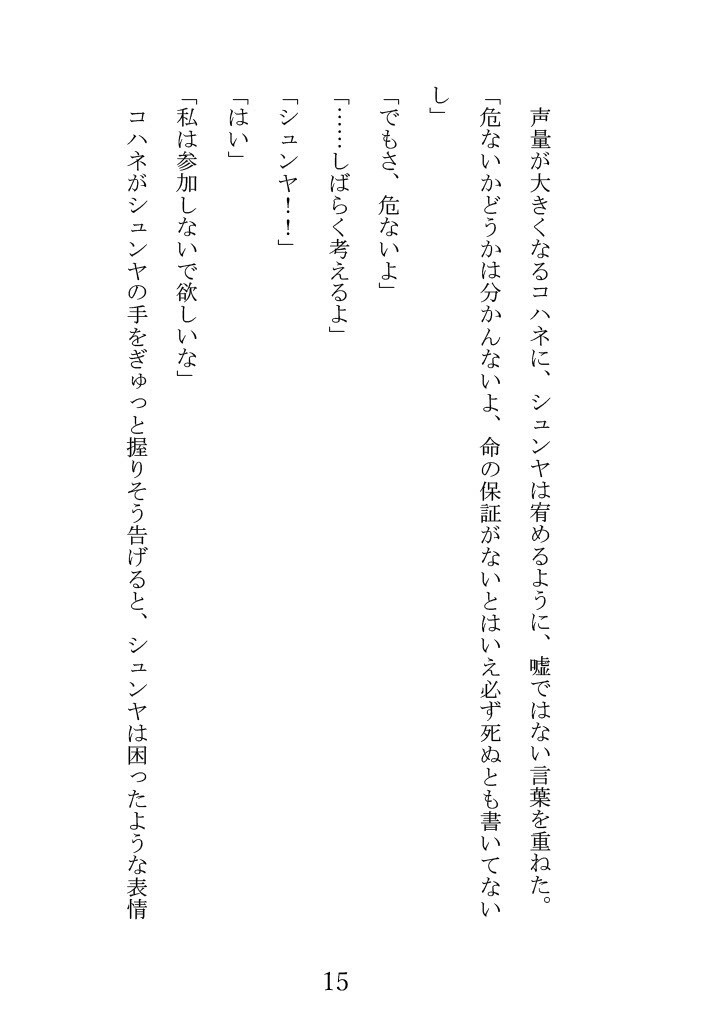 声量が大きくなるコハネに、シュンヤは宥めるように、嘘ではない言葉を重ねた。
「危ないかどうかは分かんないよ、命の保証がないとはいえ必ず死ぬとも書いてない
し」
「でもさ、危ないよ」
「……しばらく考えるよ」
「シュンヤ！！」
「はい」
「私は参加しないで欲しいな」
コハネがシュンヤの手をぎゅっと握りそう告げると、シュンヤは困ったような表情
15